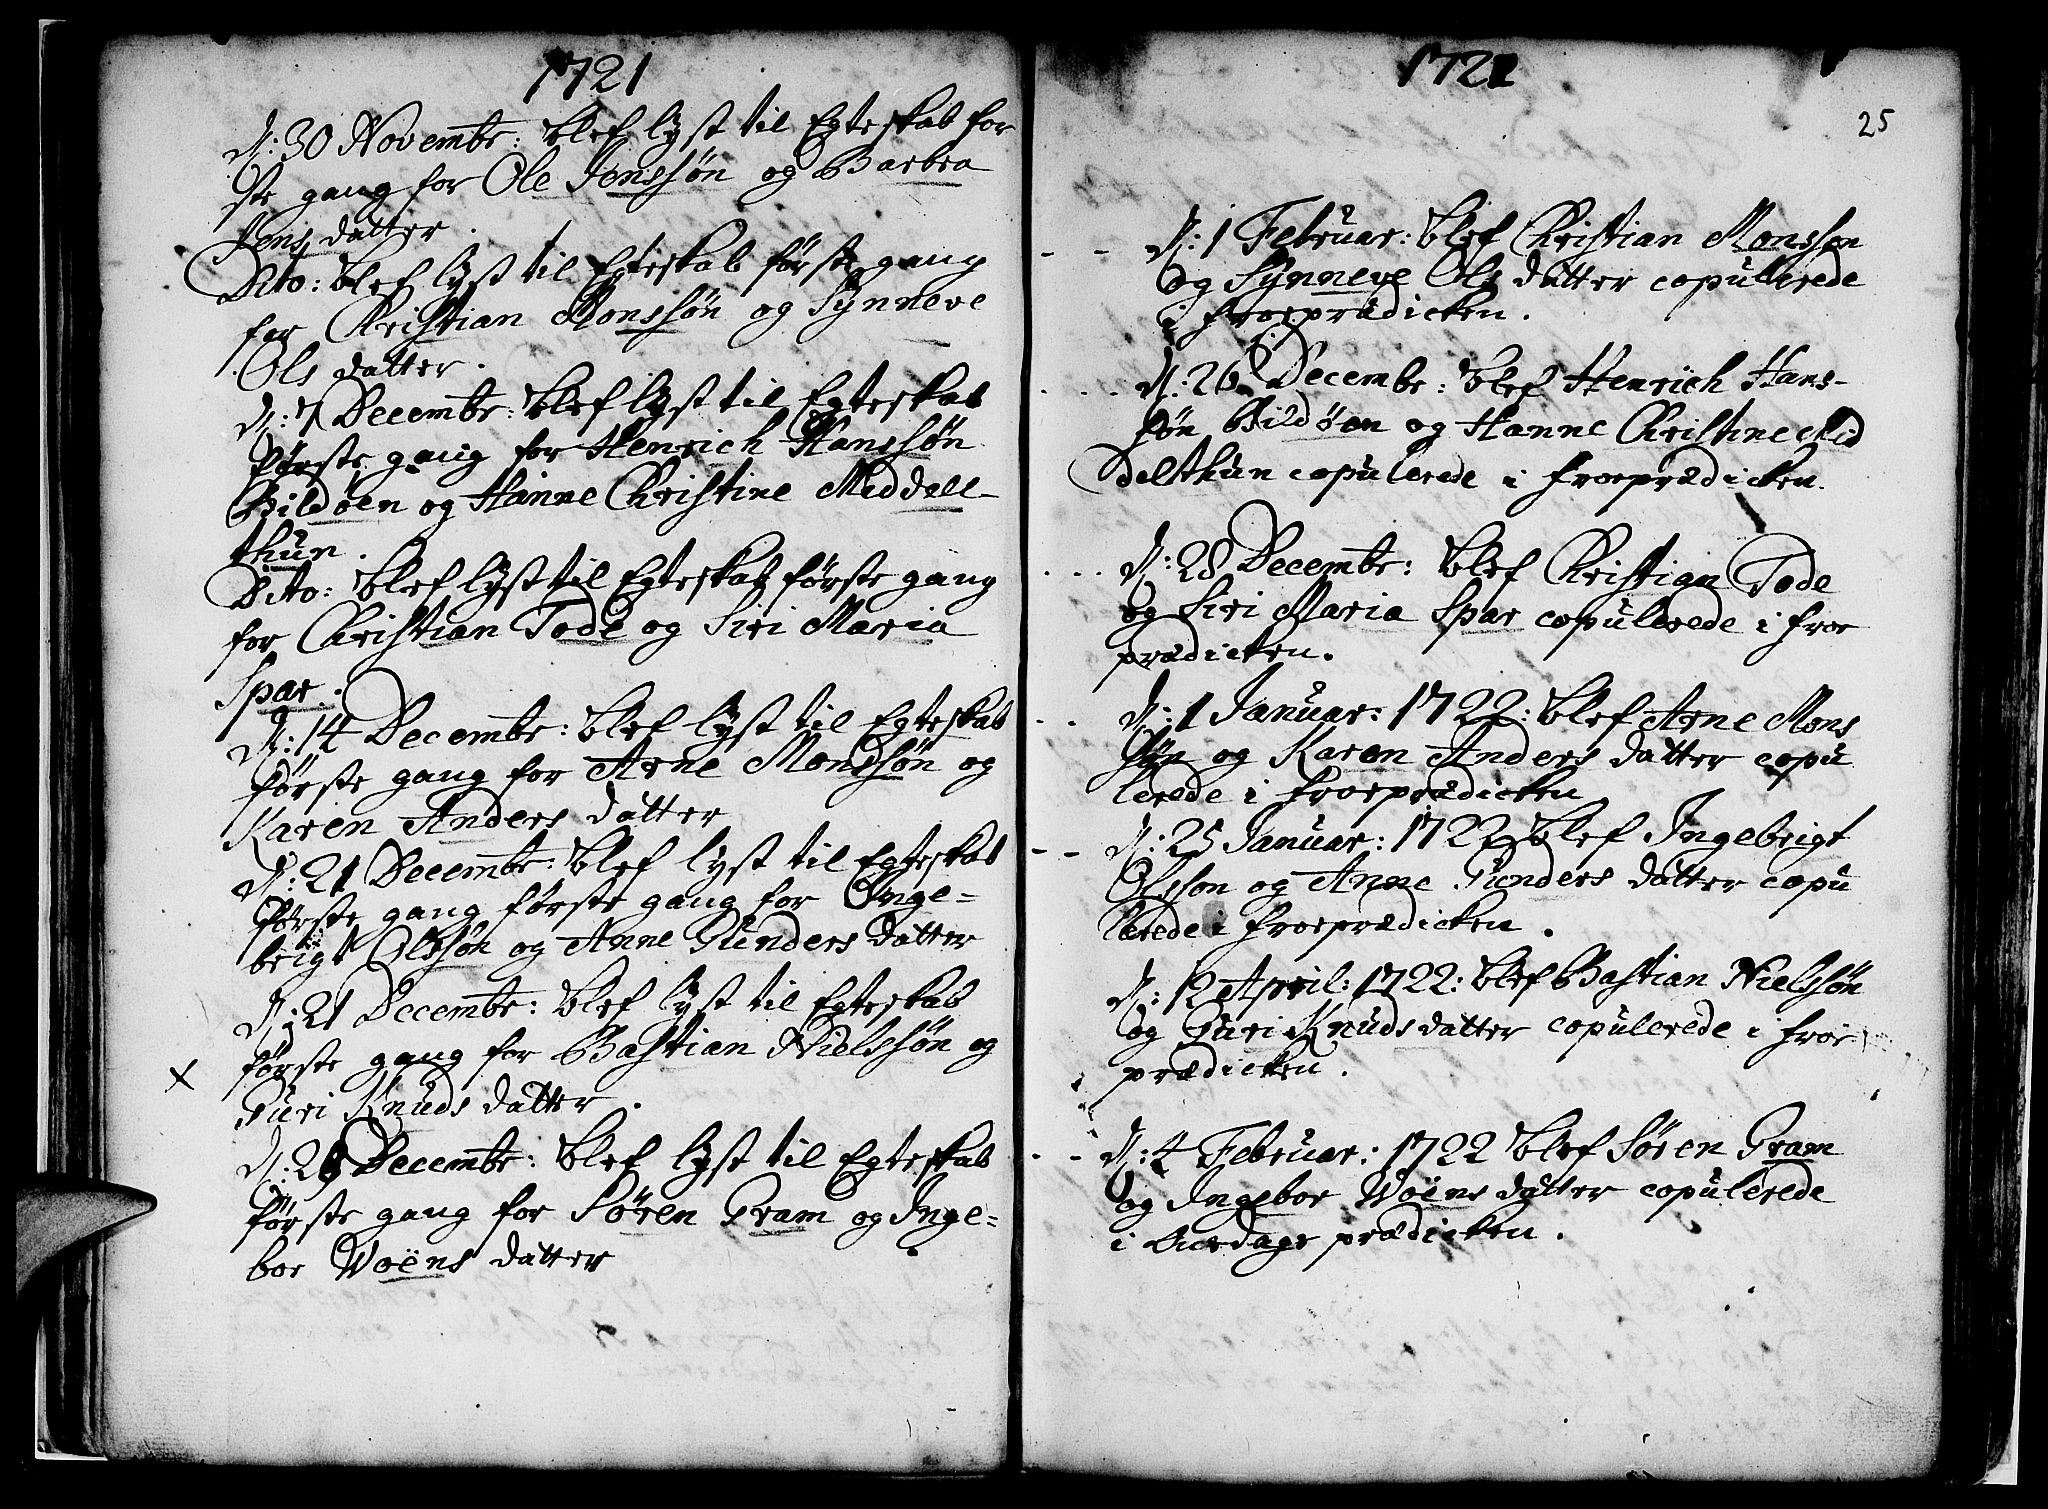 1721
D: 30 Novembr: blef lyst til Egteskab før
ste gang for Ole Jonssøn og Barbra
Jens datter.
Dito: blef lyst til Egteskab første gang
for Christian Monssøn og Synneve
Ols datter.
D: 7 Decembr: blef lyst til Egteskab
første gang for Henrich Hanssøn
Bildøen og Hanne Christine Meddell-
thun.
Dito: blef lyst til Egteskab første gang
for Christian Tode og Siri Maria
Spar.
D: 14 Decembr: blef lyst til Egteskab
første gang for Arne Monssøn og
Karen Anders datter
D: 21 Decembr: blef lyst til Egteskab
første gang første gang for Inge-
brigt Olssøn og Anne Gunders datter
D: 21 Decembr: blef lyst til Egteskab
første gang for Bastian Nielssøn og
x
Guri Knuds datter.
D: 28 Decembr: blef lyst til Egteskab
første gang for Søren Gram og Inge-
bor Woëns datter
1721
25
D: 1 Februar: blef Christian Monsson
og Synneve Ols datter copulerede
i froeprædicken.
D: 26 Decembr: blef Henrich Hans-
søn Bildøen og Hanne Christine Mid
delthun copulerede i froeprædicken.
D: 28 Decembr: blef Christian Tode
og Siri Maria Spar copulerede i froe
prædicken.
D: 1 Januar: 1722: blef Arne Mons
søn og Karen Anders datter copu
lerede i froeprædicken
D: 25 Januar: 1722 blef Ingebrigt
Olsson og Anne Gunders datter copu
lerede i froeprædicken.
D: 12 April: 1722: blef Bastian Nielssøn
og Guri Knuds datter copulerede i froe
prædicken.
D: 4 Februar: 1722 blef Søren Gram
og Ingebor Woëns datter copulerede
i Onsdags prædicken.